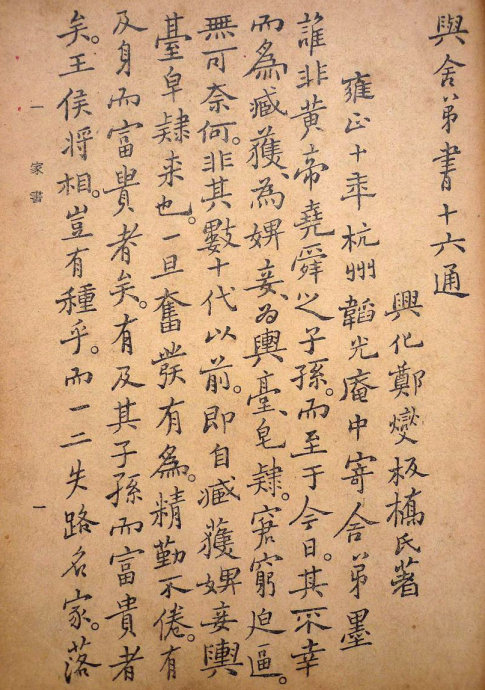 與舍弟書十六通
興化鄭燮板橋氏著
雍正十年杭州韜光庵中寄舍弟墨
誰非黃帝堯舜之子孫。而至于今日。其不幸
而為臧獲、為婢妾、為輿臺、皂隸。窘窮迫逼。
無可奈何。非其數十代以前。即自臧獲婢妾輿
臺皁隸来也。一旦奮發有為。精勤不倦。有
及身而富貴者矣。有及其子孫而富貴者
矣。王侯将相。豈有種乎。而一二失路名家。落
一 家書 一